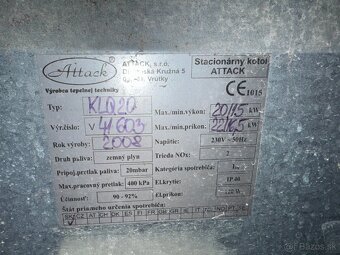 Attack
ATTACK, s.r.o.
Dielenská Kružná 5
Vrútky
Stacionárny kotol
ATTACK
CE 1015
Výrobca tepelnej techniky
Typ: KLQ20
Max./min.výkon: 20/15 kW
Výr.číslo: V 41603
Max./min.príkon: 22/16,5 kW
Rok výroby: 2008
Napätie: 230V ~ 50Hz
Druh paliva: zemný plyn
Trieda NOx:
Pripoj.pretlak paliva: 20mbar
Kategória spotrebiča:
Max.pracovný pretlak: 400 kPa
El.krytie: IP 40
Účinnosť: 90 - 92%
El.príkon: 120 W
Štát priameho určenia spotrebiča:
SK CZ AT CH DK ES FI FR GB GR IE IT